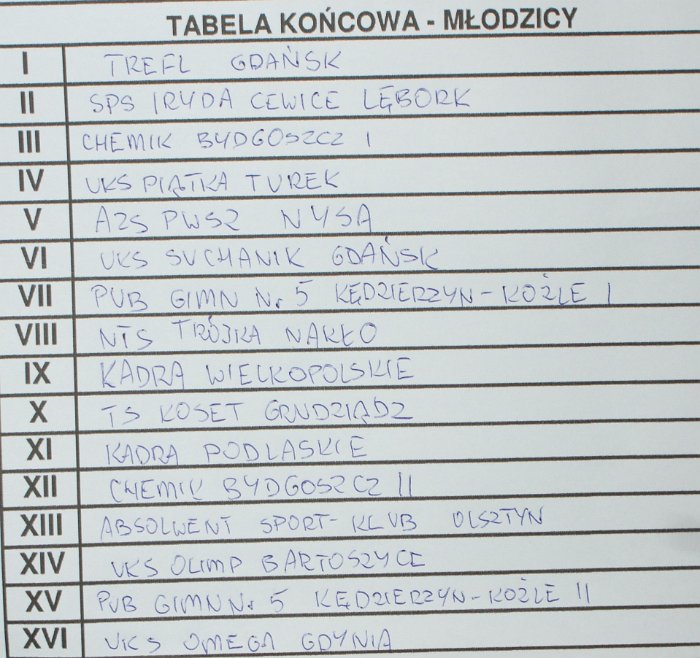 TABELA KOŃCOWA - MŁODZICY
I TREFL GDAŃSK
II SPS IRYDA CEWICE LĘBORK
III CHEMIK BYDGOSZCZ I
IV UKS PIĄTKA TUREK
V AZS PWSZ NYSA
VI UKS SUCHANIK GDAŃSK
VII PUB GIMN Nr 5 KĘDZIERZYN-KOŹLE I
VIII NTS TRÓJKA NAKŁO
IX KADRA WIELKOPOLSKIE
X TS KOSET GRUDZIĄDZ
XI KADRA PODLASKIE
XII CHEMIK BYDGOSZCZ II
XIII ABSOLWENT SPORT-KLUB OLSZTYN
XIV UKS OLIMP BARTOSZYCE
XV PUB GIMN Nr 5 KĘDZIERZYN-KOŹLE II
XVI UKS OMEGA GDYNIA